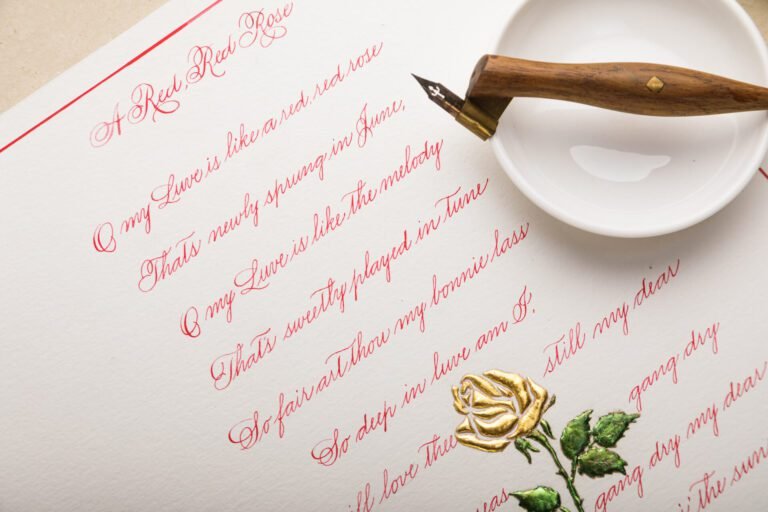 A Red, Red Rose
O my Luve is like a red, red rose
That's newly sprung in June,
O my Luve is like the melody
That's sweetly played in tune
So fair art thou my bonnie lass
So deep in luve am I,
still my dear
love thee
gang dry
seas gang dry my dear
the sun